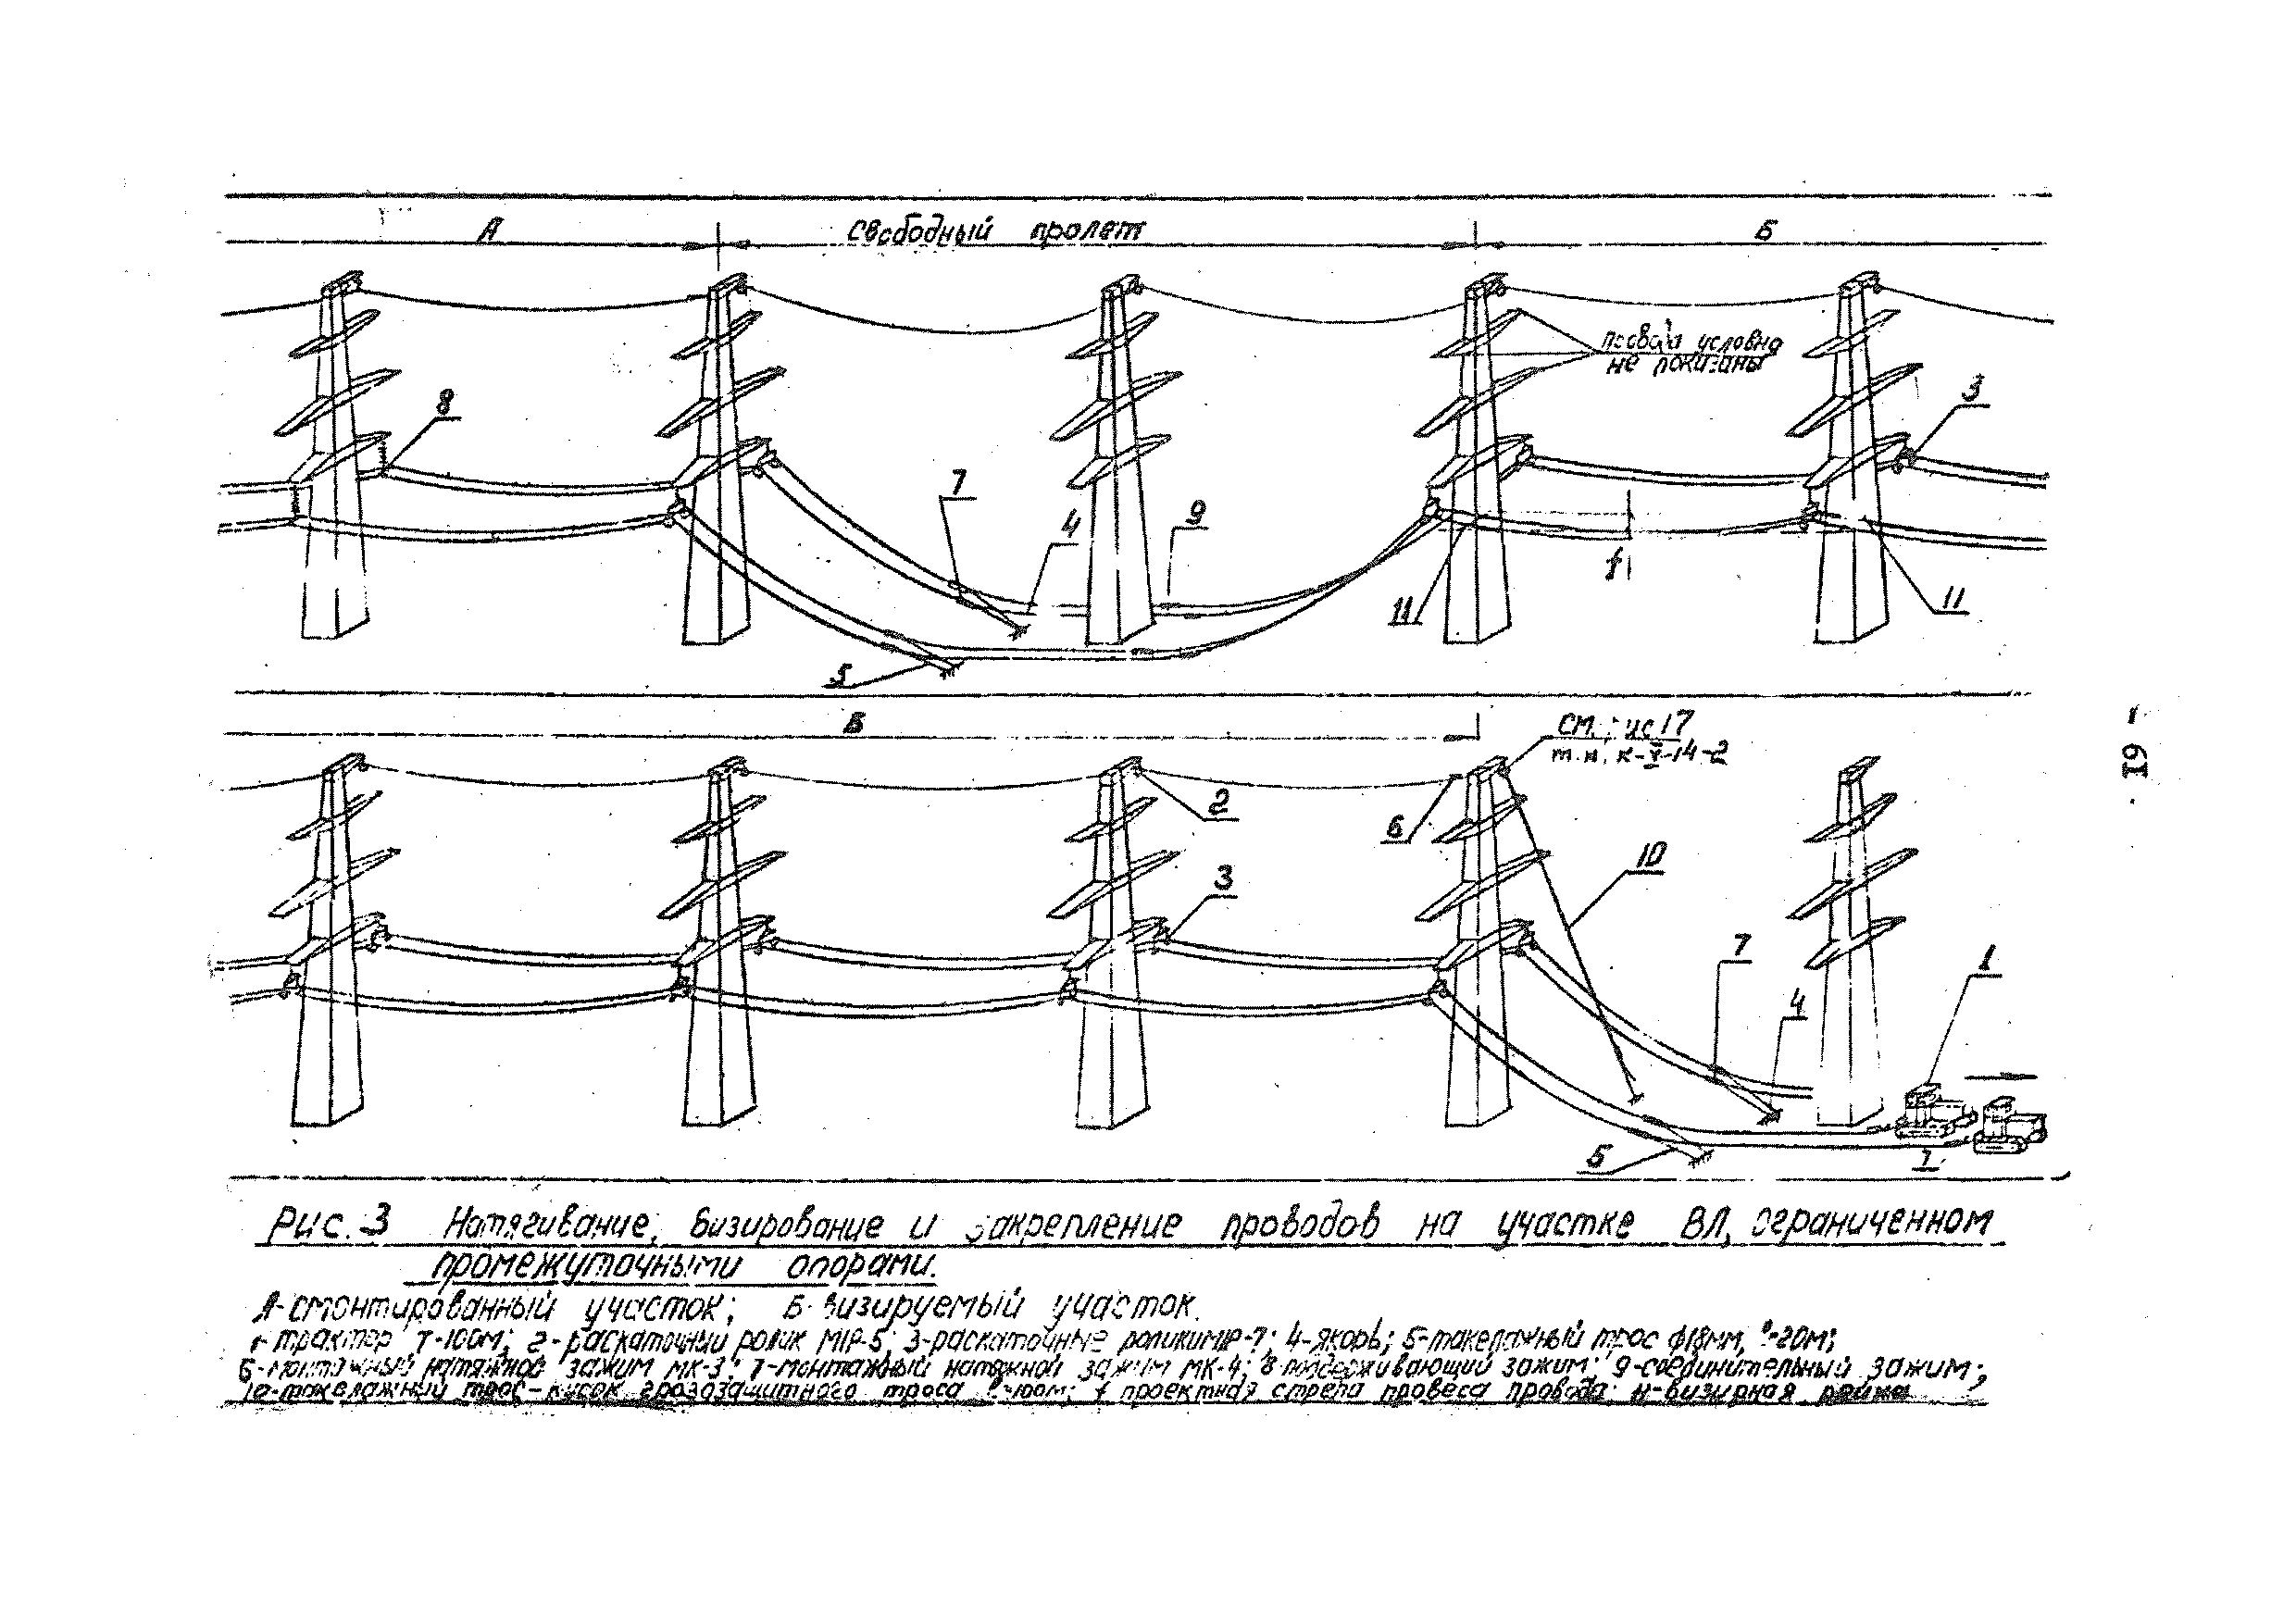 А Свободный пролет Б
провода условно
не показаны
8
3
7
4
9
11
f
11
5
Б
см. рис 17
т.к. К-V-14-2
2
6
10
3
7
1
4
5
1
19
Рис. 3 Натягивание, визирование и закрепление проводов на участке ВЛ, ограниченном
промежуточными опорами.
А-смонтированный участок; Б-визируемый участок.
1-трактор Т-100М; 2-раскаточный ролик М1Р-5; 3-раскаточные ролики М1Р-7; 4-якорь; 5-такелажный трос ф18мм, ℓ=20м;
6-монтажный натяжной зажим МК-3; 7-монтажный натяжной зажим МК-4; 8-поддерживающий зажим; 9-соединительный зажим;
10-такелажный трос-кусок грозозащитного троса ℓ=100м; f проектная стрела провеса провода; 11-визирная рейка